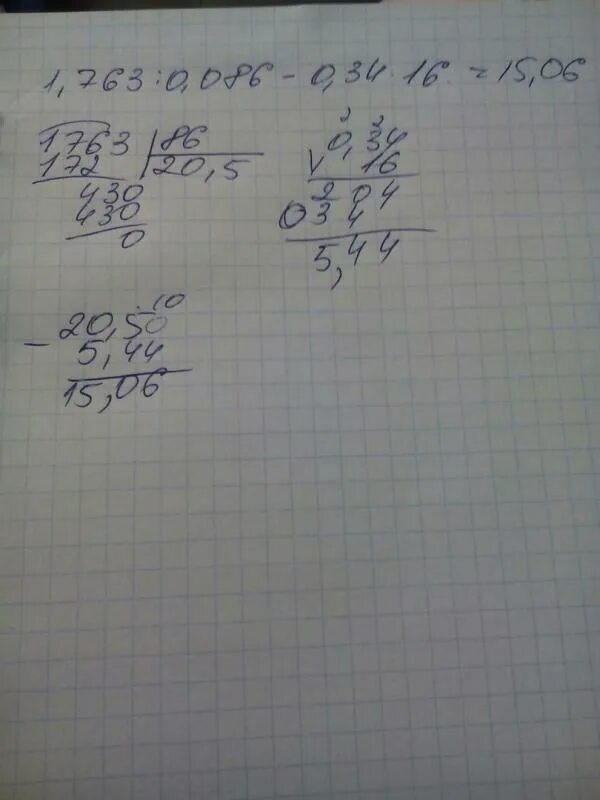 1,763:0,086 - 0,34·16 = 15,06
1763 |86
172 |20,5
430
430
0
2 2
0,34
16
204
034
5,44
·10
20,50
- 5,44
15,06